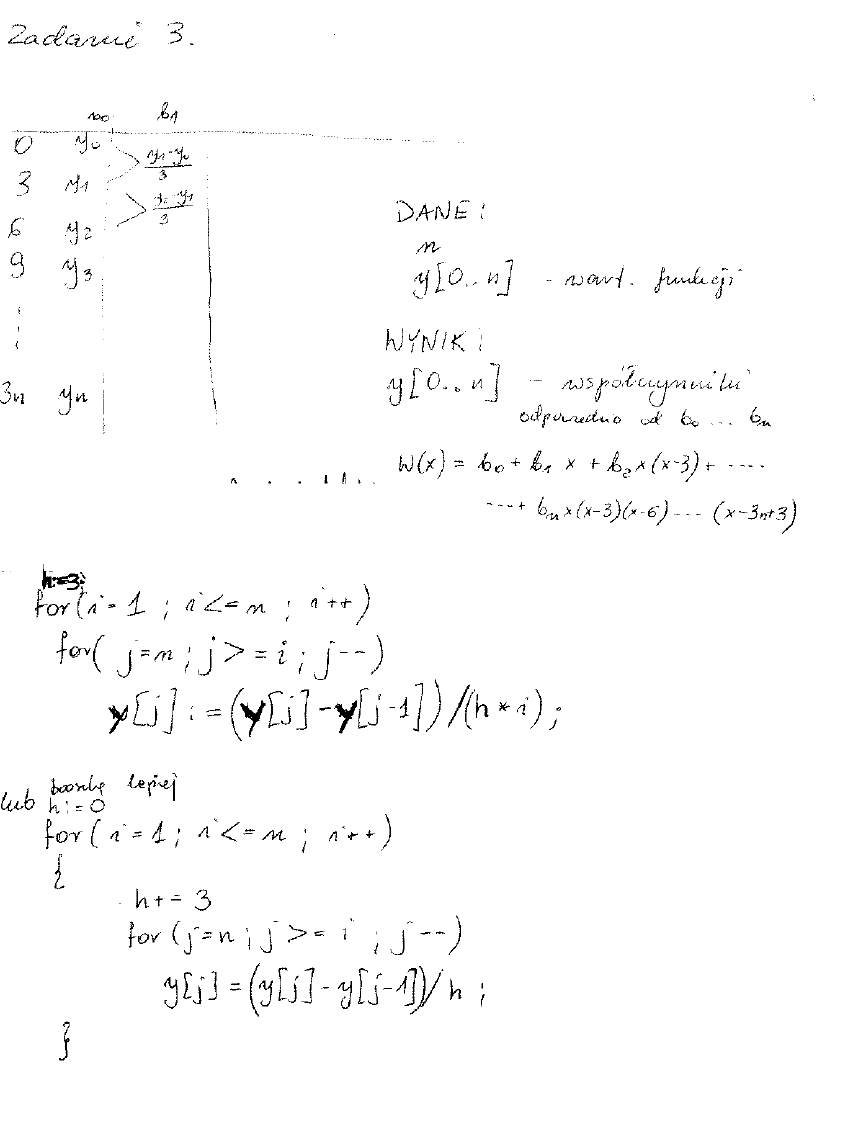 Zadanie 3.
b₀ b₁
0 y₀
y₁-y₀
3
3 y₁
y₂-y₁
3
6 y₂
9 y₃
⋮
3n yn
DANE:
n
y[0..n] - wart. funkcji
WYNIK:
y[0..n] - współczynniki
odpowiednio od b₀ ... bn
W(x) = b₀ + b₁ x + b₂ x(x-3) + ....
...+ bn x(x-3)(x-6) .... (x-3n+3)
h:=3;
for(i=1 ; i<=n ; i++)
for( j=n ; j>=i ; j--)
y[j] := (y[j]-y[j-1])/(h*i);
lub lepiej
h:=0
for( i=1 ; i<=n ; i++)
{
h+=3
for (j=n ; j>=i ; j--)
y[j]=(y[j]-y[j-1])/h ;
}